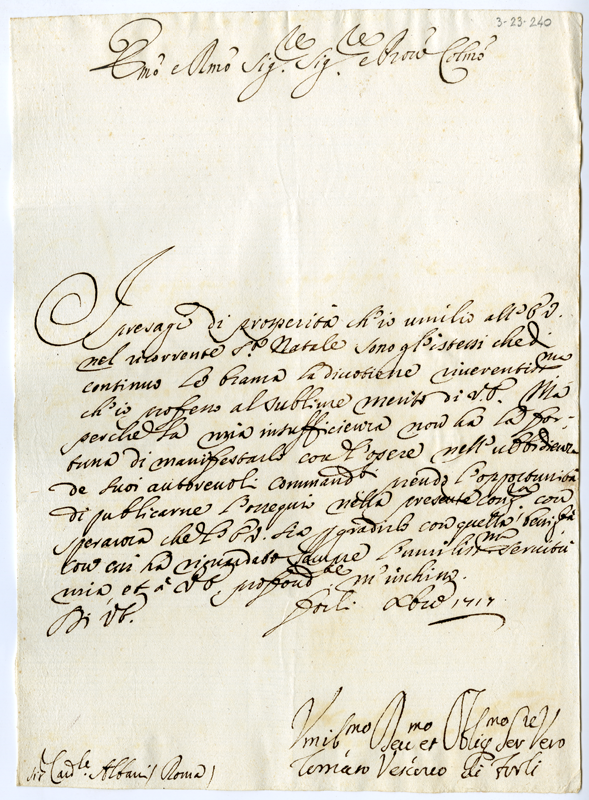 3-23-240
Emo e Rmo Sig.re Sig.re e Pron Colmo
I presagi di prosperità ch'io umilio all' V.
nel ricorrente S.to Natale sono gl'istessi che di
continuo le brama la divotione riverentissma
ch'io professo al sublime merito di V. Mà
perche la mia insufficienza non ha la for-
tuna di manifestarlo con l'opere nell' ubbidienza
de suoi autorevoli commandi prendo l'opportunità
di publicarne l'ossequio nella presente con
speranza che l' V. sia gradirlo con quella benig.tà
con cui ha riguardato sempre l'umiliss.ma servitù
mia, et à V. profond.te m'inchino.
Di V.
Forlì Xbre 1717
Umilmo Devmo et Obligmo Ser Vero
Tomaso Vescovo di Forlì
Sr Cardle Albani (Roma)